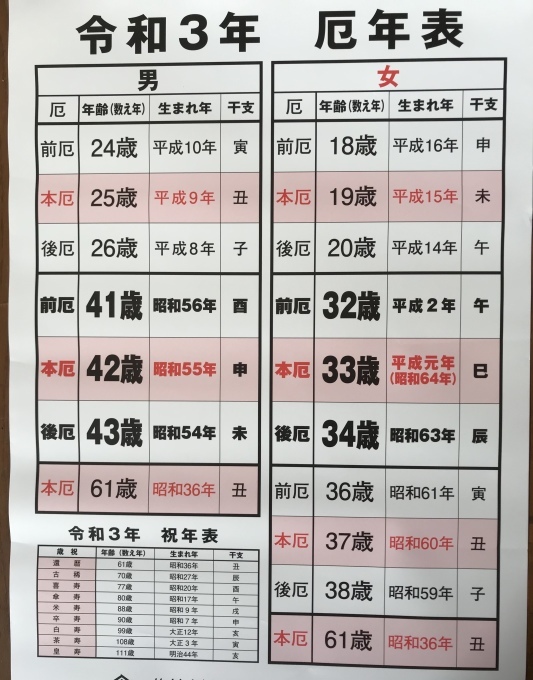 令和3年 厄年表
男
厄 年齢(数え年) 生まれ年 干支
前厄 24歳 平成10年 寅
本厄 25歳 平成9年 丑
後厄 26歳 平成8年 子
前厄 41歳 昭和56年 酉
本厄 42歳 昭和55年 申
後厄 43歳 昭和54年 未
本厄 61歳 昭和36年 丑
女
厄 年齢(数え年) 生まれ年 干支
前厄 18歳 平成16年 申
本厄 19歳 平成15年 未
後厄 20歳 平成14年 午
前厄 32歳 平成2年 午
本厄 33歳 平成元年 (昭和64年) 巳
後厄 34歳 昭和63年 辰
前厄 36歳 昭和61年 寅
本厄 37歳 昭和60年 丑
後厄 38歳 昭和59年 子
本厄 61歳 昭和36年 丑
令和3年 祝年表
歳祝 年齢(数え年) 生まれ年 干支
還暦 61歳 昭和36年 丑
古稀 70歳 昭和27年 辰
喜寿 77歳 昭和20年 酉
傘寿 80歳 昭和17年 午
米寿 88歳 昭和9年 戌
卒寿 90歳 昭和7年 申
白寿 99歳 大正12年 亥
茶寿 108歳 大正3年 寅
皇寿 111歳 明治44年 亥